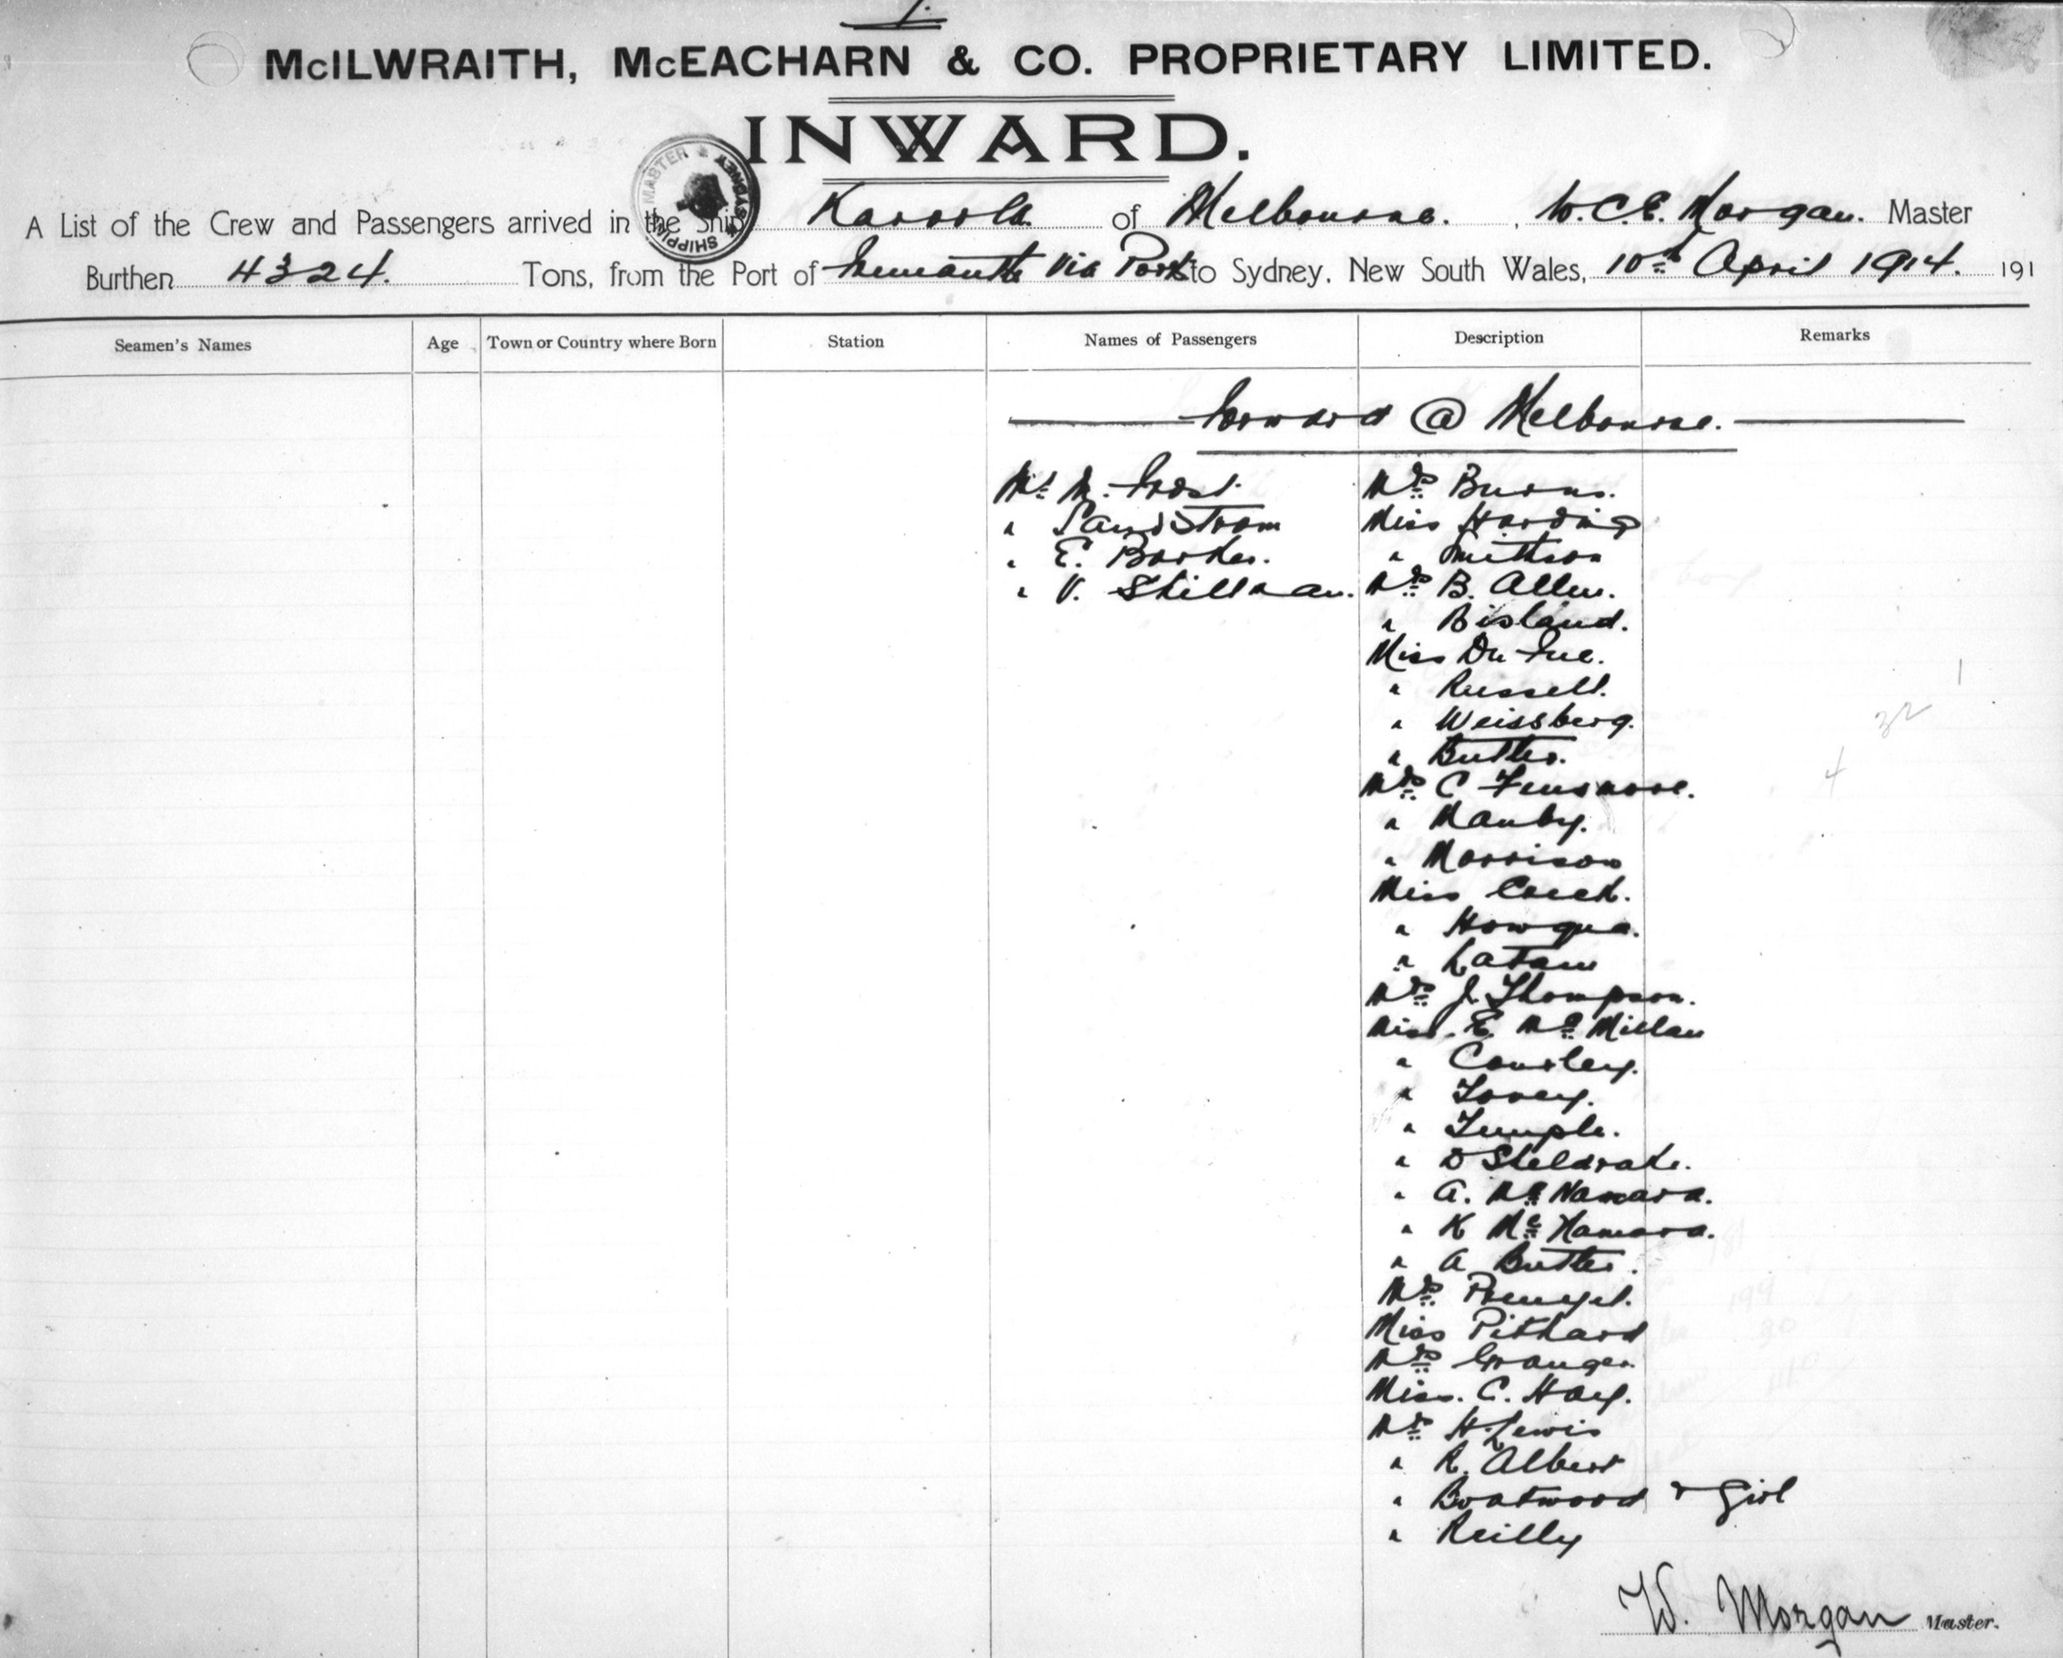 1.
McILWRAITH, McEACHARN & CO. PROPRIETARY LIMITED.
INWARD.
SHIPPING MASTER SYDNEY
A List of the Crew and Passengers arrived in the Ship Karoola of Melbourne. , W.C.E. Morgan. Master
Burthen 4324. Tons, from the Port of Fremantle Via Ports to Sydney, New South Wales, 10th April 1914. 191
Seamen's Names Age Town or Country where Born Station Names of Passengers Description Remarks
Forward @ Melbourne.
Mr. M. Frost. Mrs Burns.
" Sandstrom Miss Harding
" E. Barker. " Smithson
" V. Stillman. Mrs B. Allen.
" Bisland.
Miss Du
" Russell.
" Weissberg.
" Butler.
Mrs C
" Manby.
" Morrison
Miss
" Howqua.
" Latam
Mrs J. Thompson.
Miss. E. Mc Millan
" Coursley.
" Tovey.
" Temple.
" D Sheldrake.
" A. Mc Namara.
" K Mc Namara.
" A Butler.
Mrs
Miss Pithard
Mrs Granger
Miss. C. Hay.
Mr H. Lewis
" R. Albert
" Boatwood & Girl
" Reilly
32
4
W. Morgan Master.